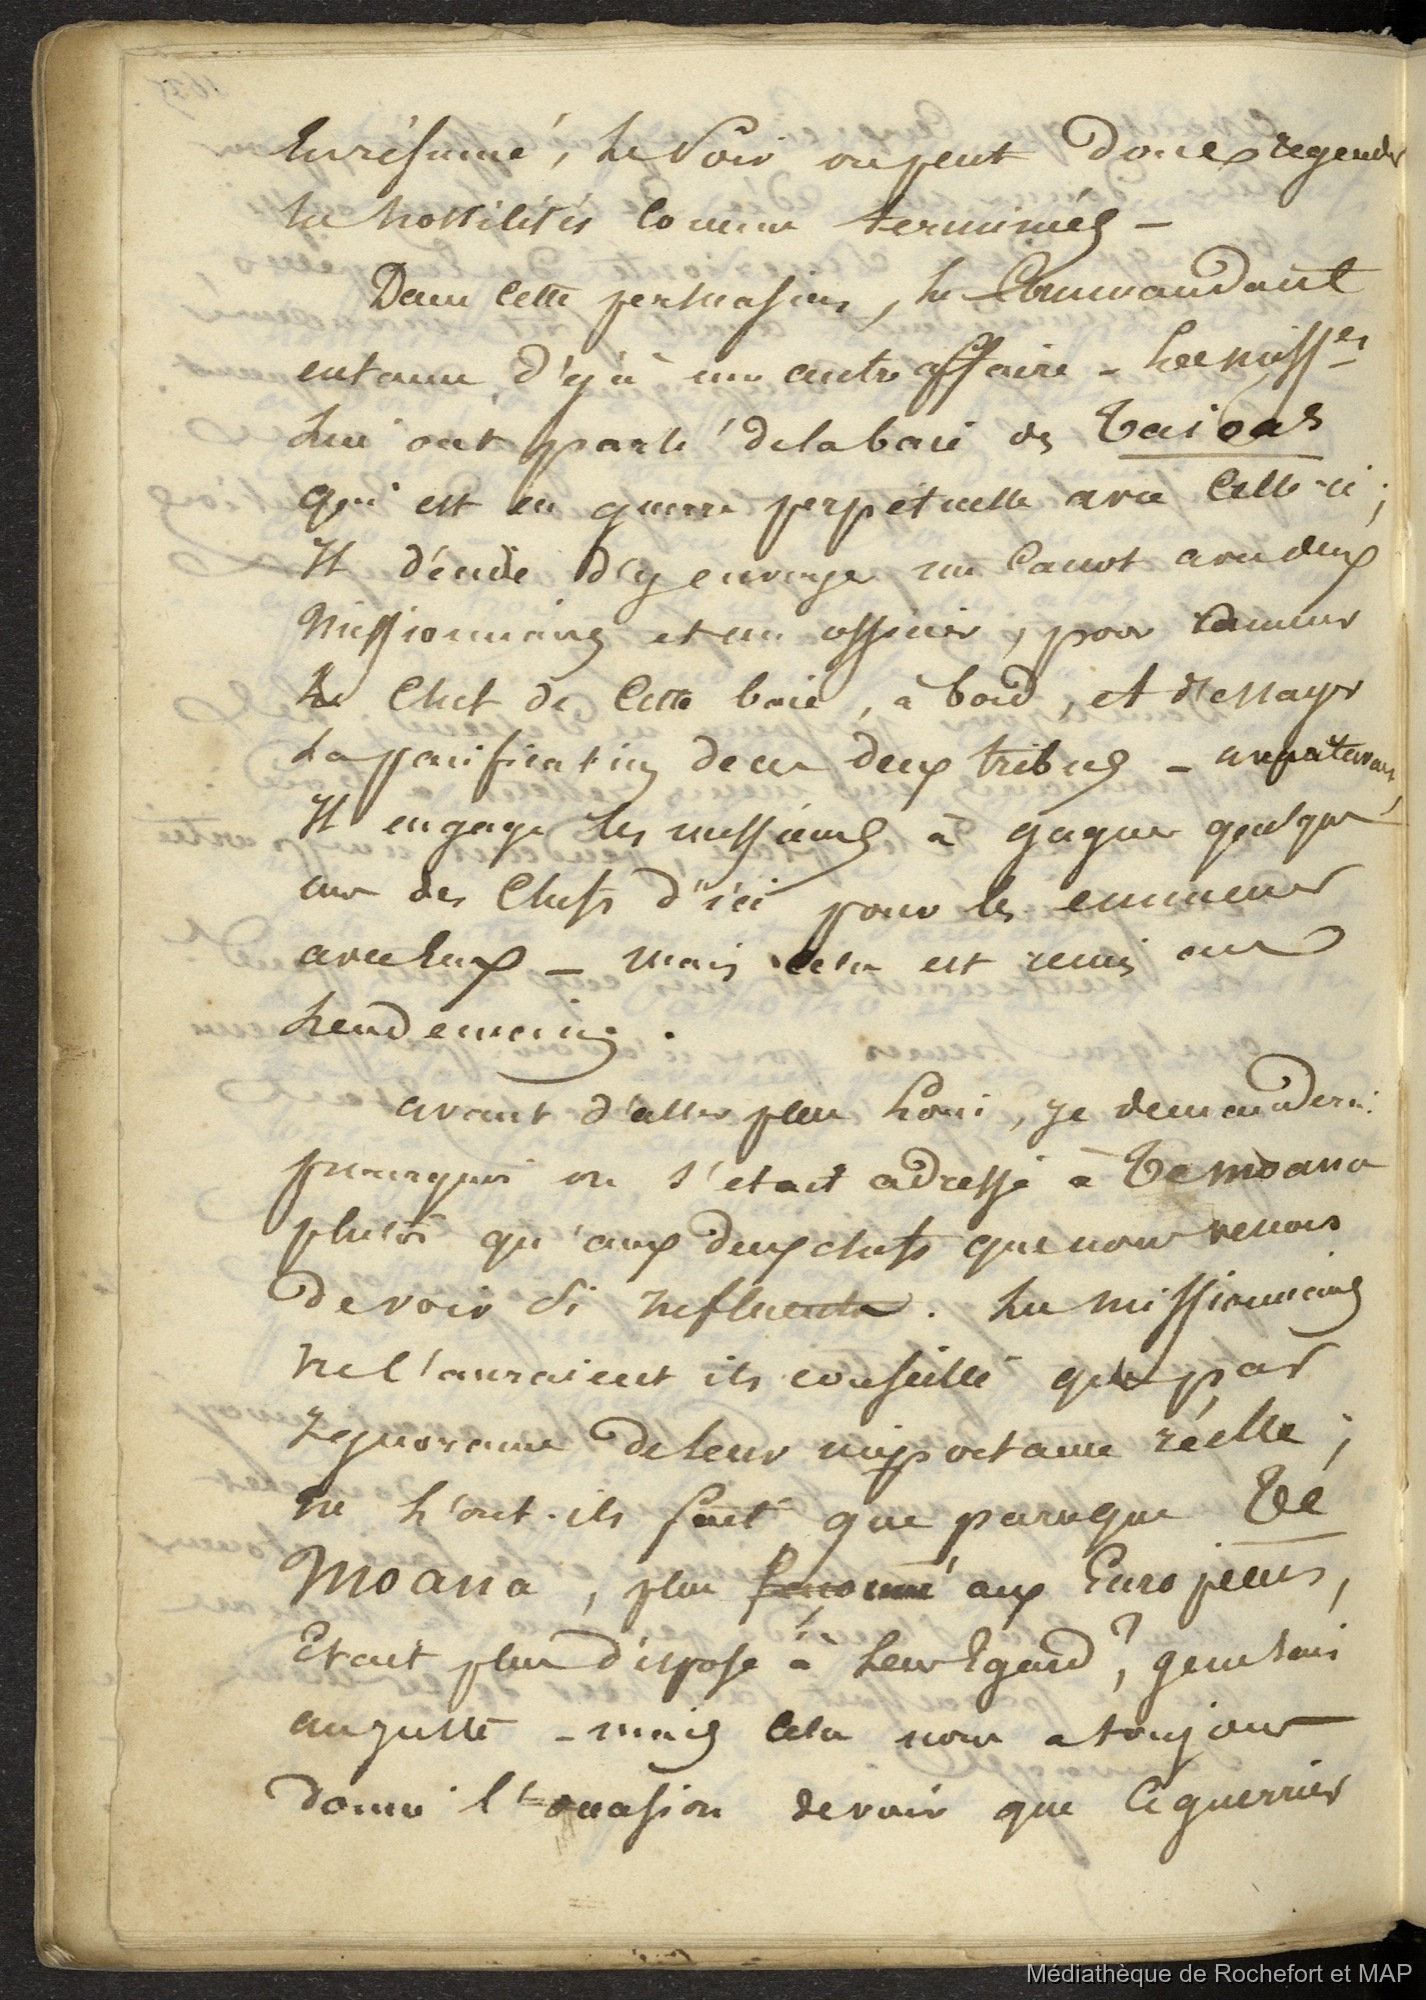 En résumé, le soir on peut donc regarder
les hostilités comme terminées –
Dans cette persuasion, le Commandant
entame déjà une autre affaire – Les miss.es
lui ont parlé de la baie des Taioas
qui est en guerre perpétuelle avec celle-ci;
Il décide d'y envoyer un canot avec deux
missionnaires et un officier, pour ramener
le Chef de cette baie, à bord, et d'essayer
la pacification de ces deux tribus –
Il engage les messieurs à gagner quelque
un des Chefs d'ici pour les emmener
avec eux – mais cela est remis au
lendemain.
avant d'aller plus loin, je demanderai
pourquoi on s'était adressé à Te moana
plutôt qu'aux deux chefs que nous venons
de voir si influents. Les missionnaires
ne l'auraient ils conseillé que par
ignorance de leur importance réelle;
ne l'ont-ils fait que parceque Té
Moana, plus aux Européens,
Etait plus disposé à leur Egard?, je ne sais
au juste – mais cela nous a toujours
donné l'occasion de voir que ce guerrier
Médiathèque de Rochefort et MAP